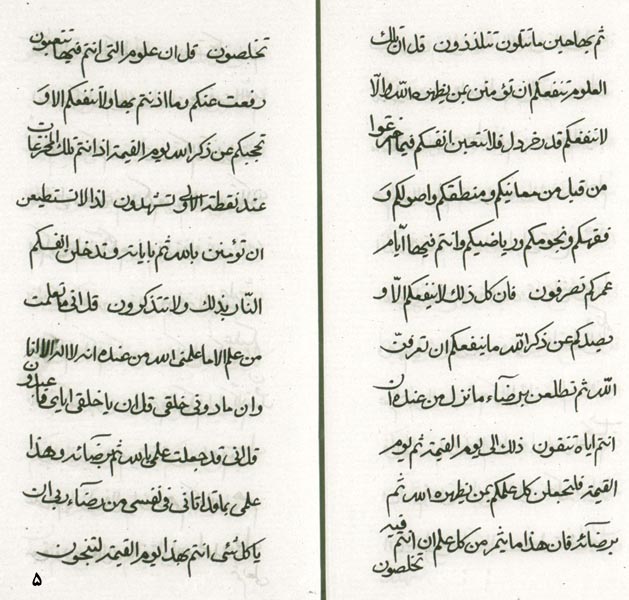 ثم بها حين ما تتلون تتلذذون قل ان تلك
العلوم تنفعكم ان تؤمنن بمن يظهره الله والا
لا تنفعكم قدر خردل فلا تتعبن انفسكم فيما اخترعوا
من قبل من معانيكم ومنطقكم واصولكم و
فقهكم ونجومكم ورياضيكم وانتم فيها ايام
عمركم تصرفون فان كل ذلك لا ينفعكم الا و
يصدكم عن ذكر الله ما ينفعكم ان تعرفن
الله ثم تطلعن برضآء ما نزل من عنده ان
انتم اياه تتقون ذلك الى يوم القيمة ثم يوم
القيمة فلتجعلن كل علمكم بمن يظهره الله ثم
برضآئه فان هذا ما يثمر من كل علم ان انتم فيه
تخلصون
تخلصون قل ان علوم التى انتم فيها تتعبون
رفعت عنكم وما اذنتم بها ولا تنفعكم الا و
تحجبكم عن ذكر الله يوم القيمة اذ انتم تلك المخترعات
عند نقطة الاولى تستهدون لذا لا تستطيعن
ان تؤمنن بالله ثم باياته وتدخلن انفسكم
النار بذلك ولا تتذكرون قل انى ما تعلمت
من علم الا ما علمنى الله من عنده انه لا اله الا انا
وان ما دونى خلقى قل ان يا خلقى اياى فاعبدون
قل انى قد جعلت علمى بالله ثم برضائه وهذا
علمى بما قد اتانى فى نفسى ومن رضآء ربى ان
يا كل شئ انتم بهذا يوم القيمة لتنجون
۵